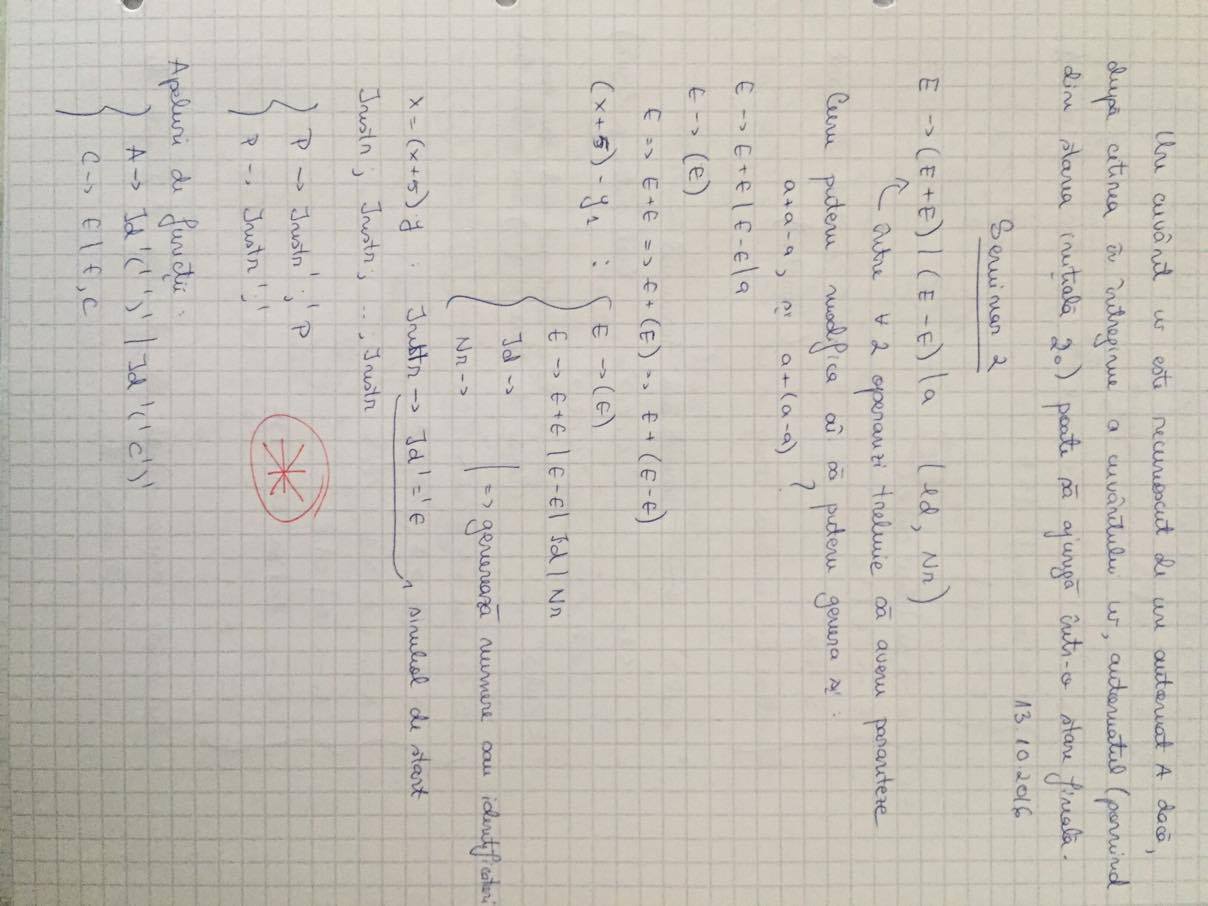 Un cuvânt w este recunoscut de un automat A dacă,
după citirea în întregime a cuvântului w, automatul (pornind
din starea inițială q0) poate să ajungă într-o stare finală.
13.10.2016
Seminar 2
E → (E+E) | (E-E) | a (Id, Nr)
între ∀ 2 operanzi trebuie să avem paranteze
Cum putem modifica aî să putem genera și:
a+a-a, și a+(a-a) ?
E → E+E | E-E | a
E → (E)
E => E+E => E+(E) => E+(E-E)
(x+5)-y1 : E → (E)
E → E+E | E-E | Id | Nr
Id →
Nr → | => generează numere sau identificatori
x=(x+5)-y : Instr → Id '=' E simbol de start
Instr; Instr; .., Instr
P → Instr ';' P
P → Instr ';'
Apeluri de funcții:
A → Id '(' ')' | Id '(' C ')'
C → E | E, C